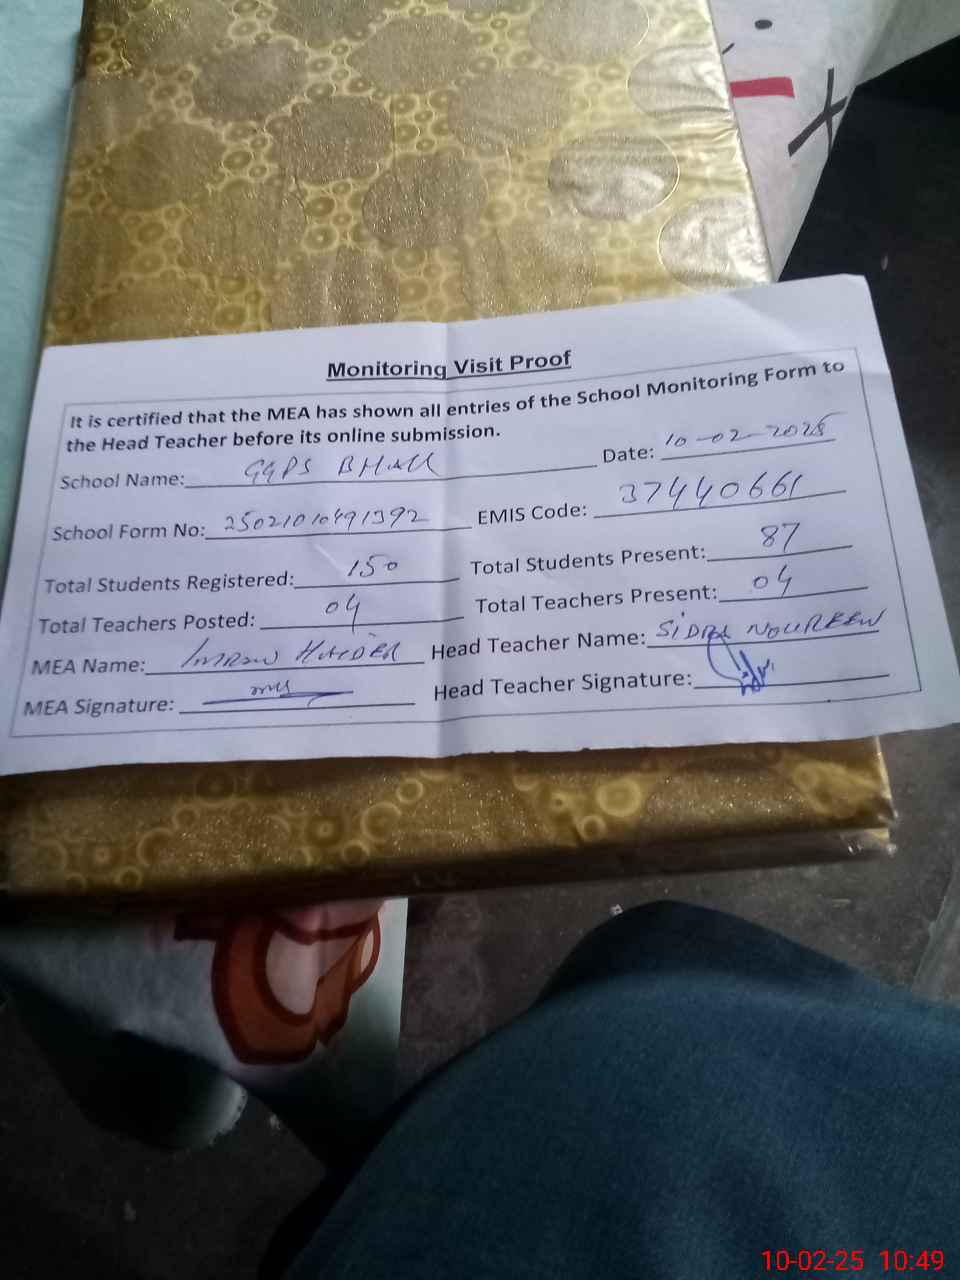 Monitoring Visit Proof
It is certified that the MEA has shown all entries of the School Monitoring Form to
the Head Teacher before its online submission.
School Name: GGPS BHALL Date: 10-02-2025
School Form No: 25021010491392 EMIS Code: 37440661
Total Students Registered: 150 Total Students Present: 87
Total Teachers Posted: 04 Total Teachers Present: 04
MEA Name: IMRAN HAIDER Head Teacher Name: SIDRA NOUREEN
MEA Signature: Head Teacher Signature:
10-02-25 10:49